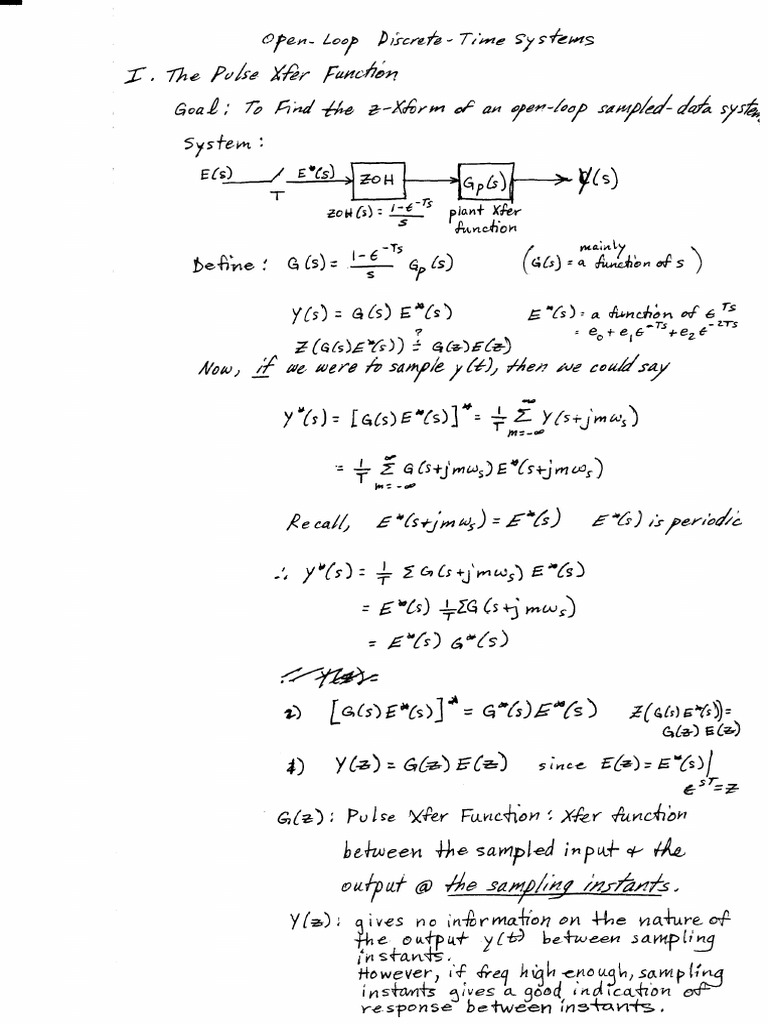 Open-Loop Discrete-Time Systems
I. The Pulse Xfer Function
Goal: To Find the z-Xform of an open-loop sampled-data system
System:
E(s) T E*(s) ZOH Gp(s) Y(s)
ZOH(s) = (1-ϵ^-Ts)/s plant Xfer
function
Define: G(s) = (1-ϵ^-Ts)/s Gp(s) (G(s) = mainly a function of s)
Y(s) = G(s) E*(s) E*(s) = a function of ϵ^Ts
= e₀ + e₁ϵ^-Ts + e₂ϵ^-2Ts
Z(G(s)E*(s)) ≟ G(z)E(z)
Now, if we were to sample y(t), then we could say
Y*(s) = [G(s)E*(s)]* = 1/T Σ_{m=-∞}^{∞} Y(s+jmωs)
= 1/T Σ_{m=-∞}^{∞} G(s+jmωs) E*(s+jmωs)
Recall, E*(s+jmωs) = E*(s) E*(s) is periodic
∴ Y*(s) = 1/T ΣG(s+jmωs) E*(s)
= E*(s) 1/T ΣG(s+jmωs)
= E*(s) G*(s)
2) [G(s)E*(s)]* = G*(s)E*(s) Z(G(s)E*(s)) =
G(z)E(z)
1) Y(z) = G(z)E(z) since E(z) = E*(s)|
ϵ^sT = z
G(z): Pulse Xfer Function: Xfer function
between the sampled input & the
output @ the sampling instants.
Y(z): gives no information on the nature of
the output y(t) between sampling
instants.
However, if freq high enough, sampling
instants gives a good indication of
response between instants.